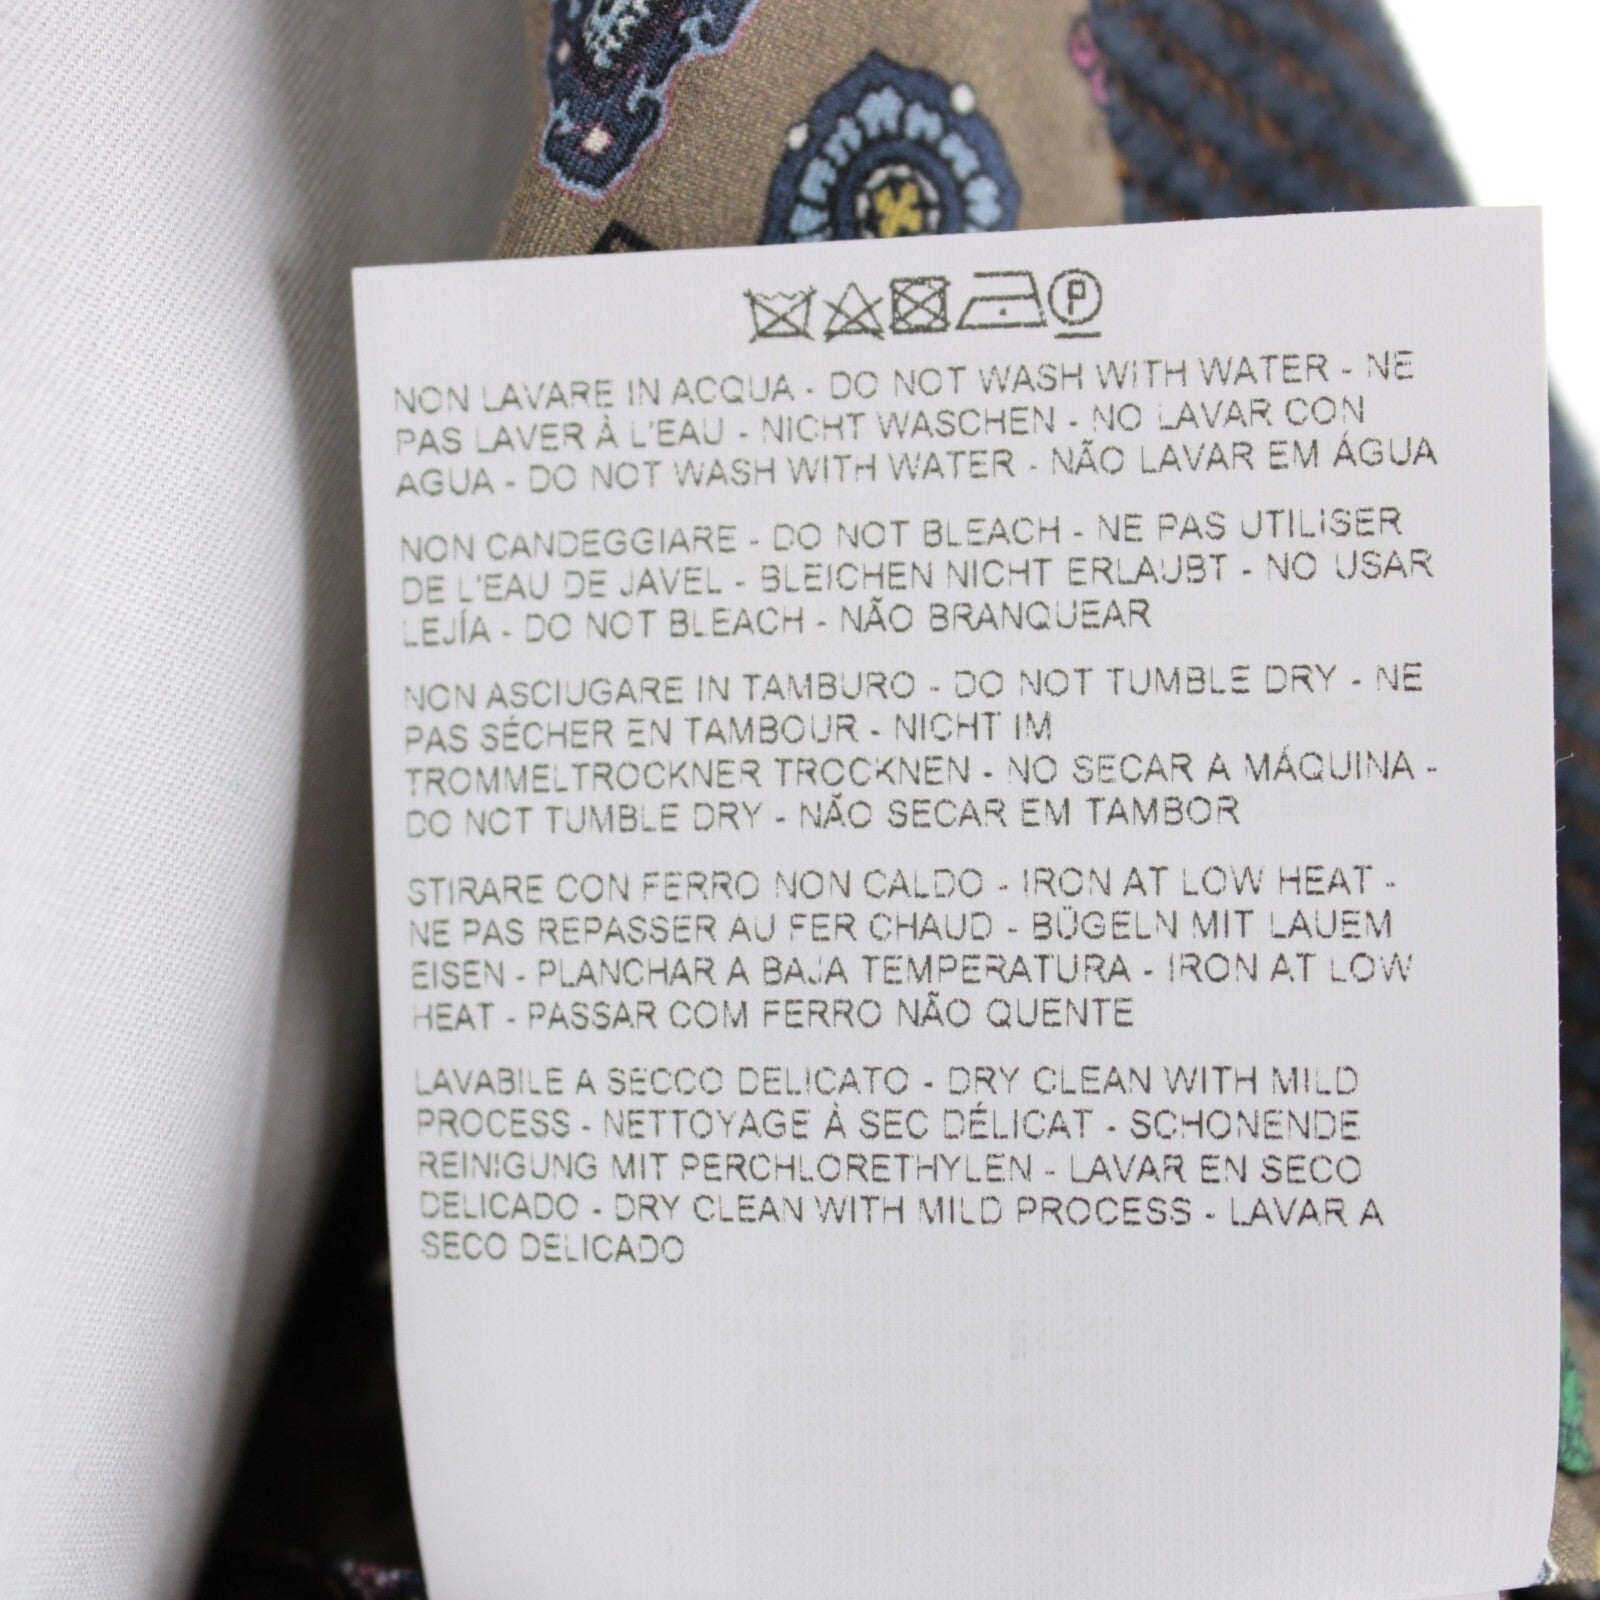 P
NON LAVARE IN ACQUA - DO NOT WASH WITH WATER - NE
PAS LAVER À L'EAU - NICHT WASCHEN - NO LAVAR CON
AGUA - DO NOT WASH WITH WATER - NÃO LAVAR EM ÁGUA
NON CANDEGGIARE - DO NOT BLEACH - NE PAS UTILISER
DE L'EAU DE JAVEL - BLEICHEN NICHT ERLAUBT - NO USAR
LEJÍA - DO NOT BLEACH - NÃO BRANQUEAR
NON ASCIUGARE IN TAMBURO - DO NOT TUMBLE DRY - NE
PAS SÉCHER EN TAMBOUR - NICHT IM
TROMMELTROCKNER TROCKNEN - NO SECAR A MÁQUINA -
DO NOT TUMBLE DRY - NÃO SECAR EM TAMBOR
STIRARE CON FERRO NON CALDO - IRON AT LOW HEAT -
NE PAS REPASSER AU FER CHAUD - BÜGELN MIT LAUEM
EISEN - PLANCHAR A BAJA TEMPERATURA - IRON AT LOW
HEAT - PASSAR COM FERRO NÃO QUENTE
LAVABILE A SECCO DELICATO - DRY CLEAN WITH MILD
PROCESS - NETTOYAGE À SEC DÉLICAT - SCHONENDE
REINIGUNG MIT PERCHLORETHYLEN - LAVAR EN SECO
DELICADO - DRY CLEAN WITH MILD PROCESS - LAVAR A
SECO DELICADO